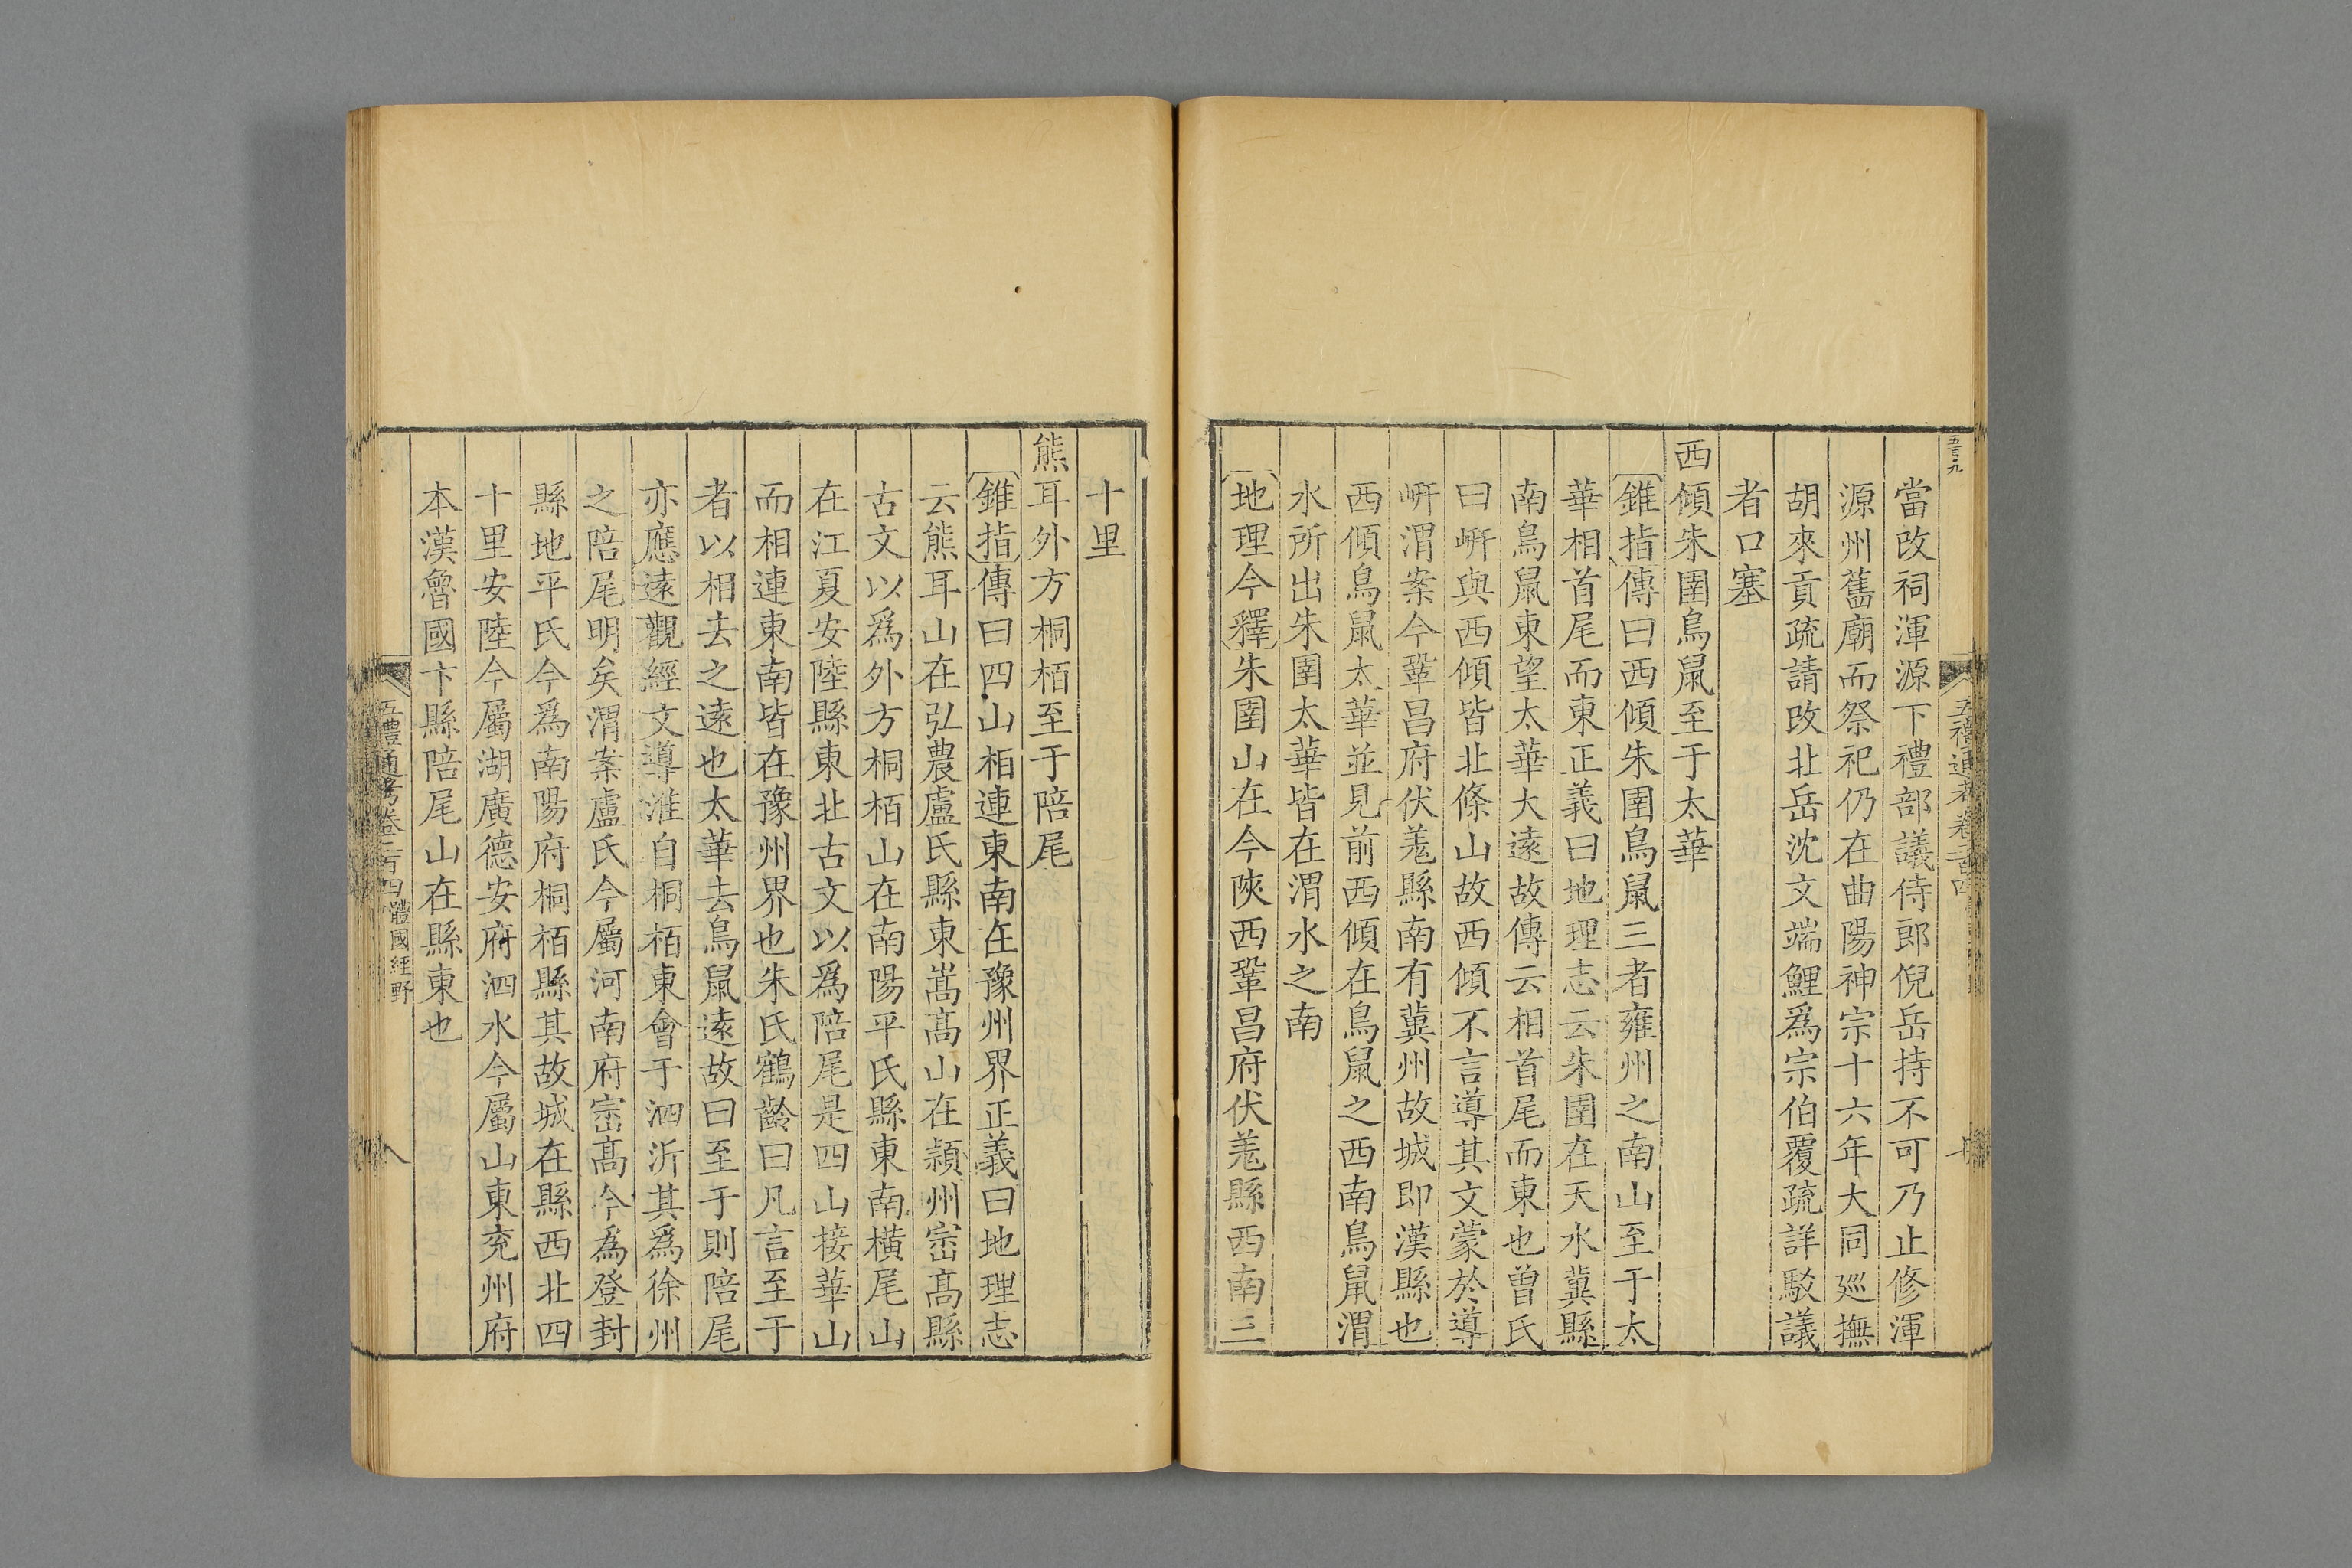 五百九
當改祠渾源下禮部議侍郎倪岳持不可乃止修渾
源州舊廟而祭祀仍在曲陽神宗十六年大同廵撫
胡來貢疏請改北岳沈文端鯉爲宗伯覆疏詳駁議
者口塞
西傾朱圉鳥鼠至于太華
錐指傳曰西傾朱圉鳥鼠三者雍州之南山至于太
華相首尾而東正義曰地理志云朱圉在天水冀縣
南鳥鼠東望太華大遠故傳云相首尾而東也曾氏
曰岍與西傾皆北條山故西傾不言導其文蒙於導
岍渭案今鞏昌府伏羗縣南有冀州故城即漢縣也
西傾鳥鼠太華並見前西傾在鳥鼠之西南鳥鼠渭
水所出朱圉太華皆在渭水之南
地理今釋朱圉山在今陝西鞏昌府伏羗縣西南三
十里
熊耳外方桐栢至于陪尾
錐指傳曰四山相連東南在豫州界正義曰地理志
云熊耳山在弘農盧氏縣東嵩高山在潁州崈高縣
古文以爲外方桐栢山在南陽平氏縣東南橫尾山
在江夏安陸縣東北古文以爲陪尾是四山接華山
而相連東南皆在豫州界也朱氏鶴齡曰凡言至于
者以相去之遠也太華去鳥鼠遠故曰至于則陪尾
亦應遠觀經文導淮自桐栢東會于泗沂其爲徐州
之陪尾明矣渭案盧氏今屬河南府崈高今為登封
縣地平氏今爲南陽府桐栢縣其故城在縣西北四
十里安陸今屬湖廣德安府泗水今屬山東兖州府
本漢魯國卞縣陪尾山在縣東也
五禮通考卷二百四 體國經野
八